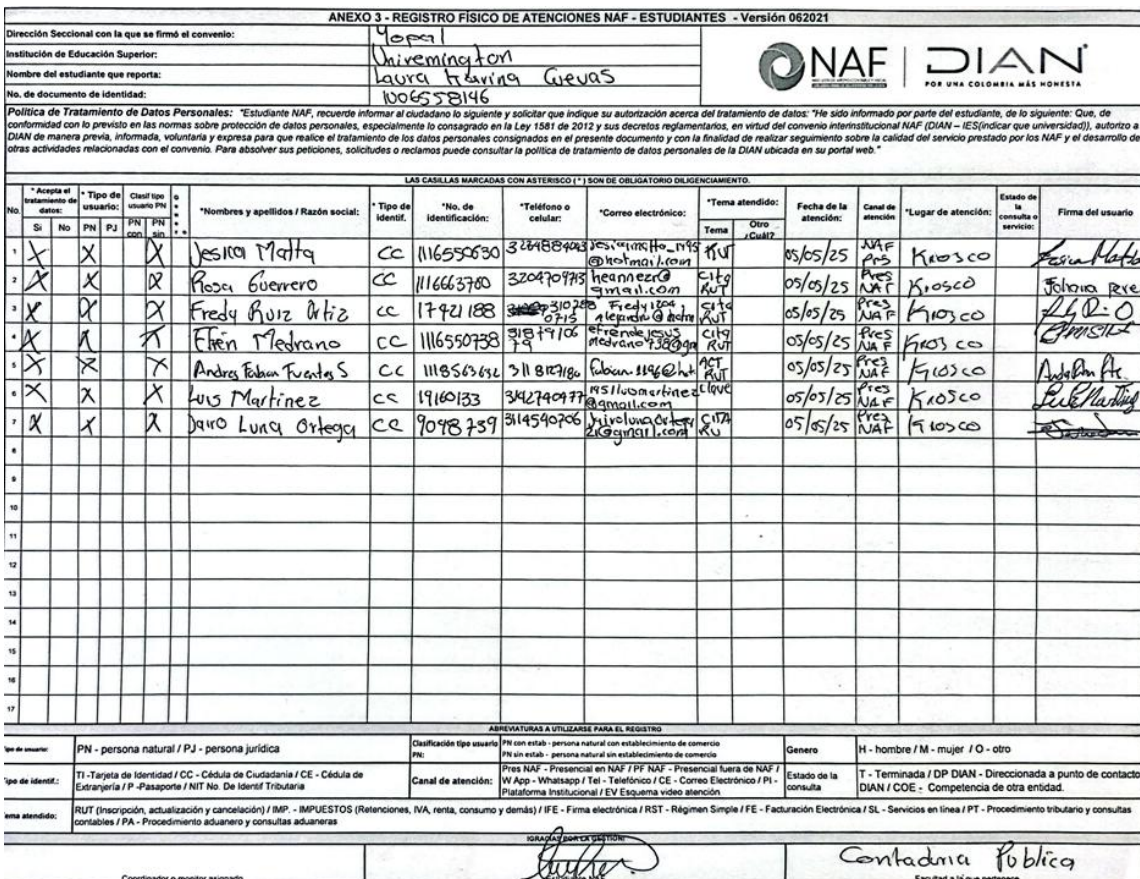 ANEXO 3 - REGISTRO FÍSICO DE ATENCIONES NAF - ESTUDIANTES - Versión 062021
Dirección Seccional con la que se firmó el convenio: Yopal
Institución de Educación Superior: Uniremington
Nombre del estudiante que reporta: Laura Cuevas
No. de documento de identidad: 1006558146
NAF DIAN
POR UNA COLOMBIA MÁS HONESTA
Política de Tratamiento de Datos Personales: "Estudiante NAF, recuerde informar al ciudadano lo siguiente y solicitar que indique su autorización acerca del tratamiento de datos: "He sido informado por parte del estudiante, de lo siguiente: Que, de
conformidad con lo previsto en las normas sobre protección de datos personales, especialmente lo consagrado en la Ley 1581 de 2012 y sus decretos reglamentarios, en virtud del convenio interinstitucional NAF (DIAN – IES(indicar que universidad)), autorizo a
DIAN de manera previa, informada, voluntaria y expresa para que realice el tratamiento de los datos personales consignados en el presente documento y con la finalidad de realizar seguimiento sobre la calidad del servicio prestado por los NAF y el desarrollo de
otras actividades relacionadas con el convenio. Para absolver sus peticiones, solicitudes o reclamos puede consultar la política de tratamiento de datos personales de la DIAN ubicada en su portal web."
LAS CASILLAS MARCADAS CON ASTERISCO (*) SON DE OBLIGATORIO DILIGENCIAMIENTO.
No. * Acepta el tratamiento de datos: Si No * Tipo de usuario: PN PJ Clasif tipo usuario PN PN con PN sin *Nombres y apellidos / Razón social: * Tipo de identif. *No. de identificación: *Teléfono o celular: *Correo electrónico: *Tema atendido: Tema Otro ¿Cuál? Fecha de la atención: Canal de atención *Lugar de atención: Estado de la consulta o servicio: Firma del usuario
1 X X X Jesica Matta CC 1116550630 @hotmail.com RUT 05/05/25 NAF Prs Kiosco
2 X X X Rosa Guerrero CC 1116663760 3204709713 heannezr@gmail.com Cita RUT 05/05/25 Pres NAF Kiosco
3 X X X Fredy Ruiz Ortiz CC 17421188 Cita RUT 05/05/25 Pres NAF Kiosco
4 X X X Efrén Medrano CC 1116550738 Cita RUT 05/05/25 Pres NAF Kiosco
5 X X X Andres Fabian Fuentes S CC 1118563632 ACT RUT 05/05/25 Pres NAF Kiosco
6 X X X Luis Martinez CC 19160133 3142740977 1951luismartinez@gmail.com clave 05/05/25 Pres NAF Kiosco
7 X X X Dairo Luna Ortega CC 9048739 3114540706 CITA RU 05/05/25 Pres NAF Kiosco
8
9
10
11
12
13
14
15
16
17
ABREVIATURAS A UTILIZARSE PARA EL REGISTRO
Tipo de usuario: PN - persona natural / PJ - persona jurídica Clasificación tipo usuario PN: PN con estab - persona natural con establecimiento de comercio PN sin estab - persona natural sin establecimiento de comercio Genero H - hombre / M - mujer / O - otro
Tipo de identif.: TI -Tarjeta de Identidad / CC - Cédula de Ciudadanía / CE - Cédula de Extranjería / P -Pasaporte / NIT No. De Identif Tributaria Canal de atención: Pres NAF - Presencial en NAF / PF NAF - Presencial fuera de NAF / W App - Whatsapp / Tel - Telefónico / CE - Correo Electrónico / PI - Plataforma Institucional / EV Esquema video atención Estado de la consulta T - Terminada / DP DIAN - Direccionada a punto de contacto DIAN / COE - Competencia de otra entidad.
Tema atendido: RUT (Inscripción, actualización y cancelación) / IMP. - IMPUESTOS (Retenciones, IVA, renta, consumo y demás) / IFE - Firma electrónica / RST - Régimen Simple / FE - Facturación Electrónica / SL - Servicios en línea / PT - Procedimiento tributario y consultas
contables / PA - Procedimiento aduanero y consultas aduaneras
¡GRACIAS POR LA GESTIÓN!
Contaduria Publica
Coordinador o monitor asignado Facultad a la que pertenece